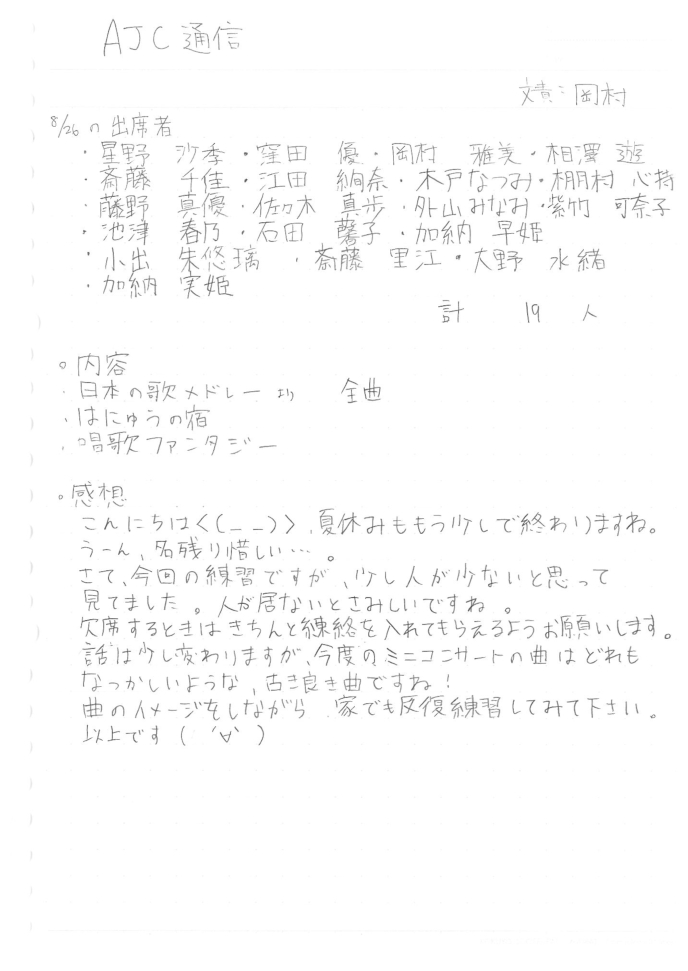 AJC通信
文責：岡村
8/26の出席者
・星野 沙季・窪田 優・岡村 雅美・相澤 遊
・斎藤 千佳・江田 絢奈・木戸なつみ・棚村 心持
・藤野 真優・佐々木 真歩・外山みなみ・紫竹 可奈子
・池津 春乃・石田 馨子・加納 早姫
・小出 朱悠璃・斎藤 里江・大野 水緒
・加納 実姫
計 19 人
○内容
・日本の歌メドレーより 全曲
・はにゅうの宿
・唱歌ファンタジー
○感想
こんにちは<(_ _)>、夏休みももう少しで終わりますね。
うーん、名残り惜しい…。
さて、今回の練習ですが、少し人が少ないと思って
見てました。人が居ないとさみしいですね。
欠席するときはきちんと練絡を入れてもらえるようお願いします。
話は少し変わりますが、今度のミニコンサートの曲はどれも
なつかしいような、古き良き曲ですね！
曲のイメージをしながら、家でも反復練習してみて下さい。
以上です( ´∀` )